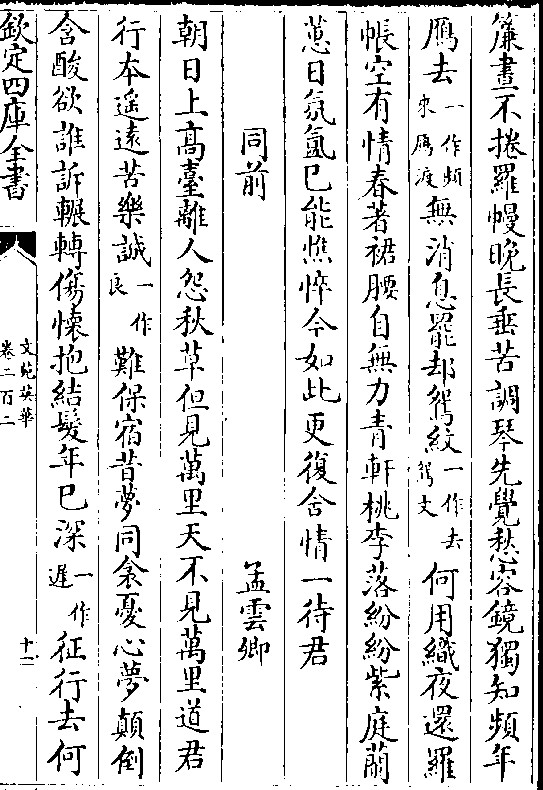 簾晝不捲羅幔晩長垂苦調琴先覺愁容鏡獨知頻年
鴈去一作頻來鴈渡無消息罷却鴛紋一作去鴛文何用織夜還羅
帳空有情春著裙腰自無力青軒桃李落紛紛紫庭蘭
蕙日氛氳已能憔悴今如此更復含情一待君
同前　孟雲卿
朝日上髙臺離人怨秋草但見萬里天不見萬里道君
行本遥遠苦樂誠一作良難保宿昔夢同衾憂心夢顛倒
含酸欲誰訴輾轉傷懷抱結髮年已深一作遲征行去何
欽定四庫全書
文苑英華
卷二百二
十一